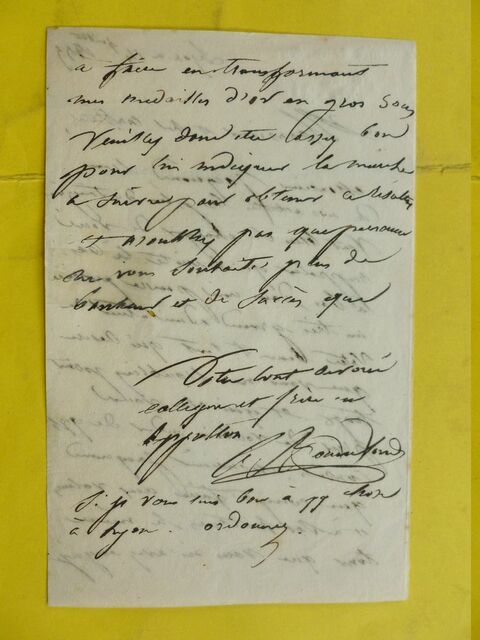 a faire en transformant
mes medailles d'or en gros sous
Veuillez donc être assez bon
pour m'indiquer la marche
à suivre pour obtenir ce résultat
et n'oubliez pas que personne
ne vous souhaite plus de
bonheur et de succès que
Votre tout dévoué
collègue et frère en
Appollon
Si je vous suis bon à qq chose
à Lyon. ordonnez